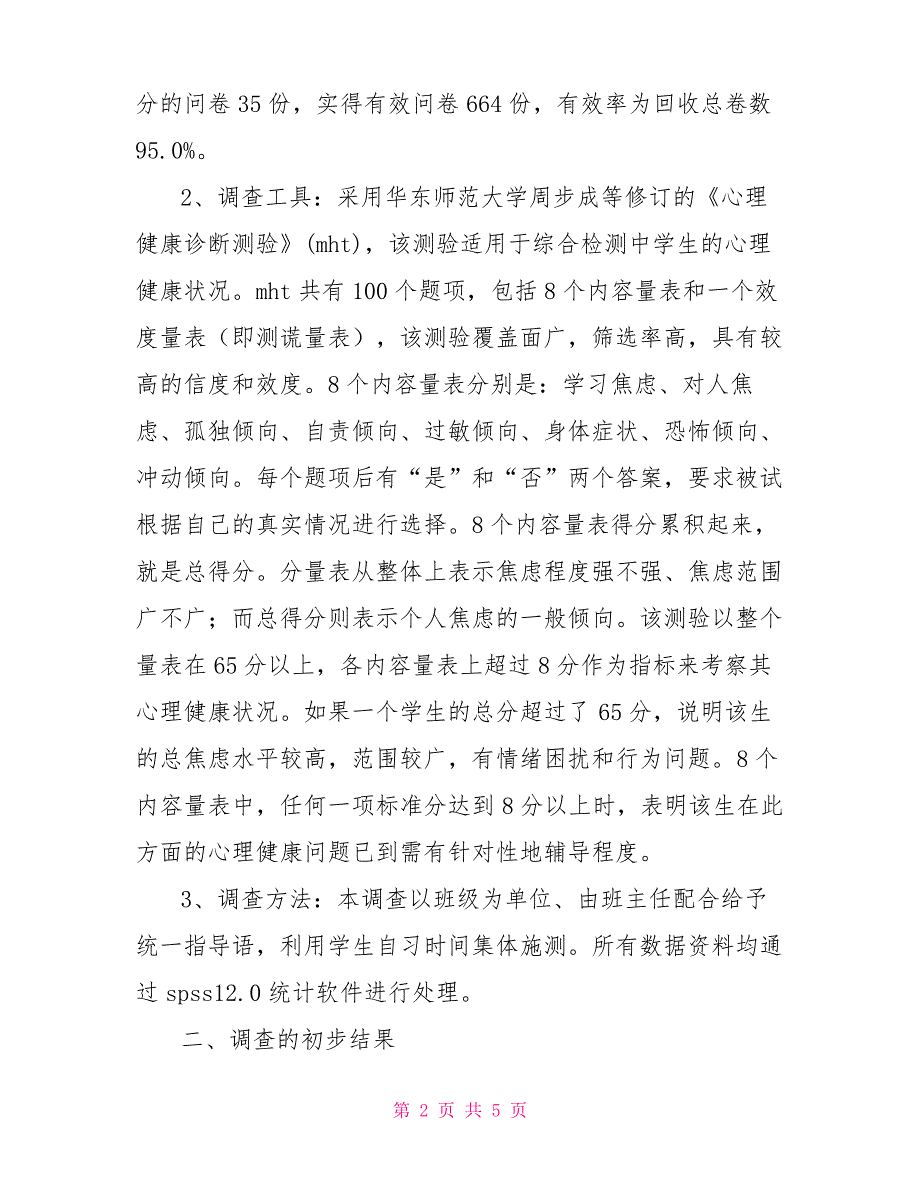 分的问卷 35 份，实得有效问卷 664 份，有效率为回收总卷数
95.0%。
2、调查工具：采用华东师范大学周步成等修订的《心理
健康诊断测验》(mht)，该测验适用于综合检测中学生的心理
健康状况。mht 共有 100 个题项，包括 8 个内容量表和一个效
度量表（即测谎量表），该测验覆盖面广，筛选率高，具有较
高的信度和效度。8 个内容量表分别是：学习焦虑、对人焦
虑、孤独倾向、自责倾向、过敏倾向、身体症状、恐怖倾向、
冲动倾向。每个题项后有“是”和“否”两个答案，要求被试
根据自己的真实情况进行选择。8 个内容量表得分累积起来，
就是总得分。分量表从整体上表示焦虑程度强不强、焦虑范围
广不广；而总得分则表示个人焦虑的一般倾向。该测验以整个
量表在 65 分以上，各内容量表上超过 8 分作为指标来考察其
心理健康状况。如果一个学生的总分超过了 65 分，说明该生
的总焦虑水平较高，范围较广，有情绪困扰和行为问题。8 个
内容量表中，任何一项标准分达到 8 分以上时，表明该生在此
方面的心理健康问题已到需有针对性地辅导程度。
3、调查方法：本调查以班级为单位、由班主任配合给予
统一指导语，利用学生自习时间集体施测。所有数据资料均通
过 spss12.0 统计软件进行处理。
二、调查的初步结果
第 2 页 共 5 页